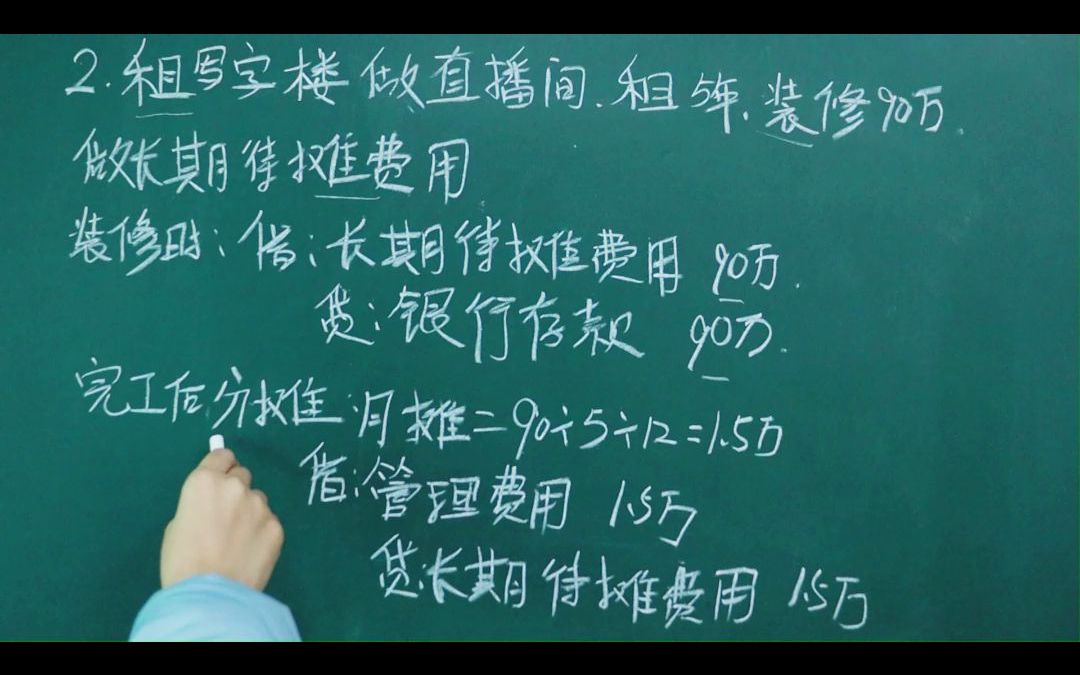 2.租写字楼做直播间.租5年.装修90万.
做长期待摊费用
装修时:借:长期待摊费用 90万.
贷:银行存款 90万.
完工后分摊:月摊=90÷5÷12=1.5万
借:管理费用 1.5万
贷:长期待摊费用 1.5万